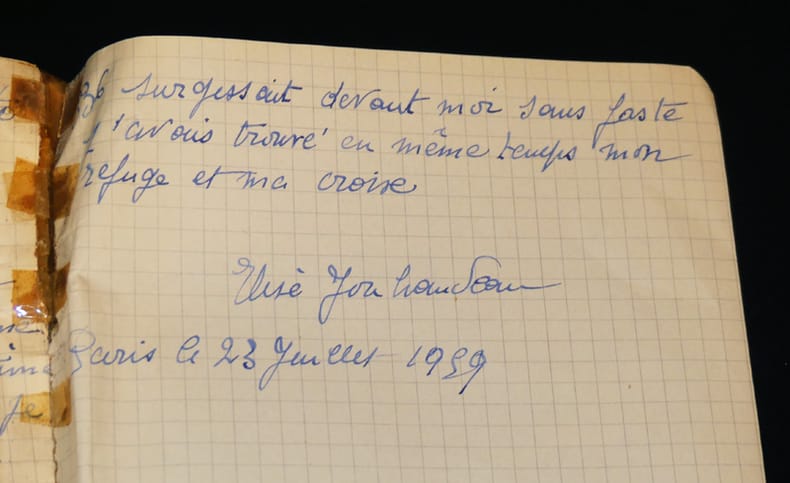 surgissait devant moi sans faste
j'avais trouvé en même temps mon
refuge et ma croix
Elise Jouhandeau
Paris le 23 Juillet 1959